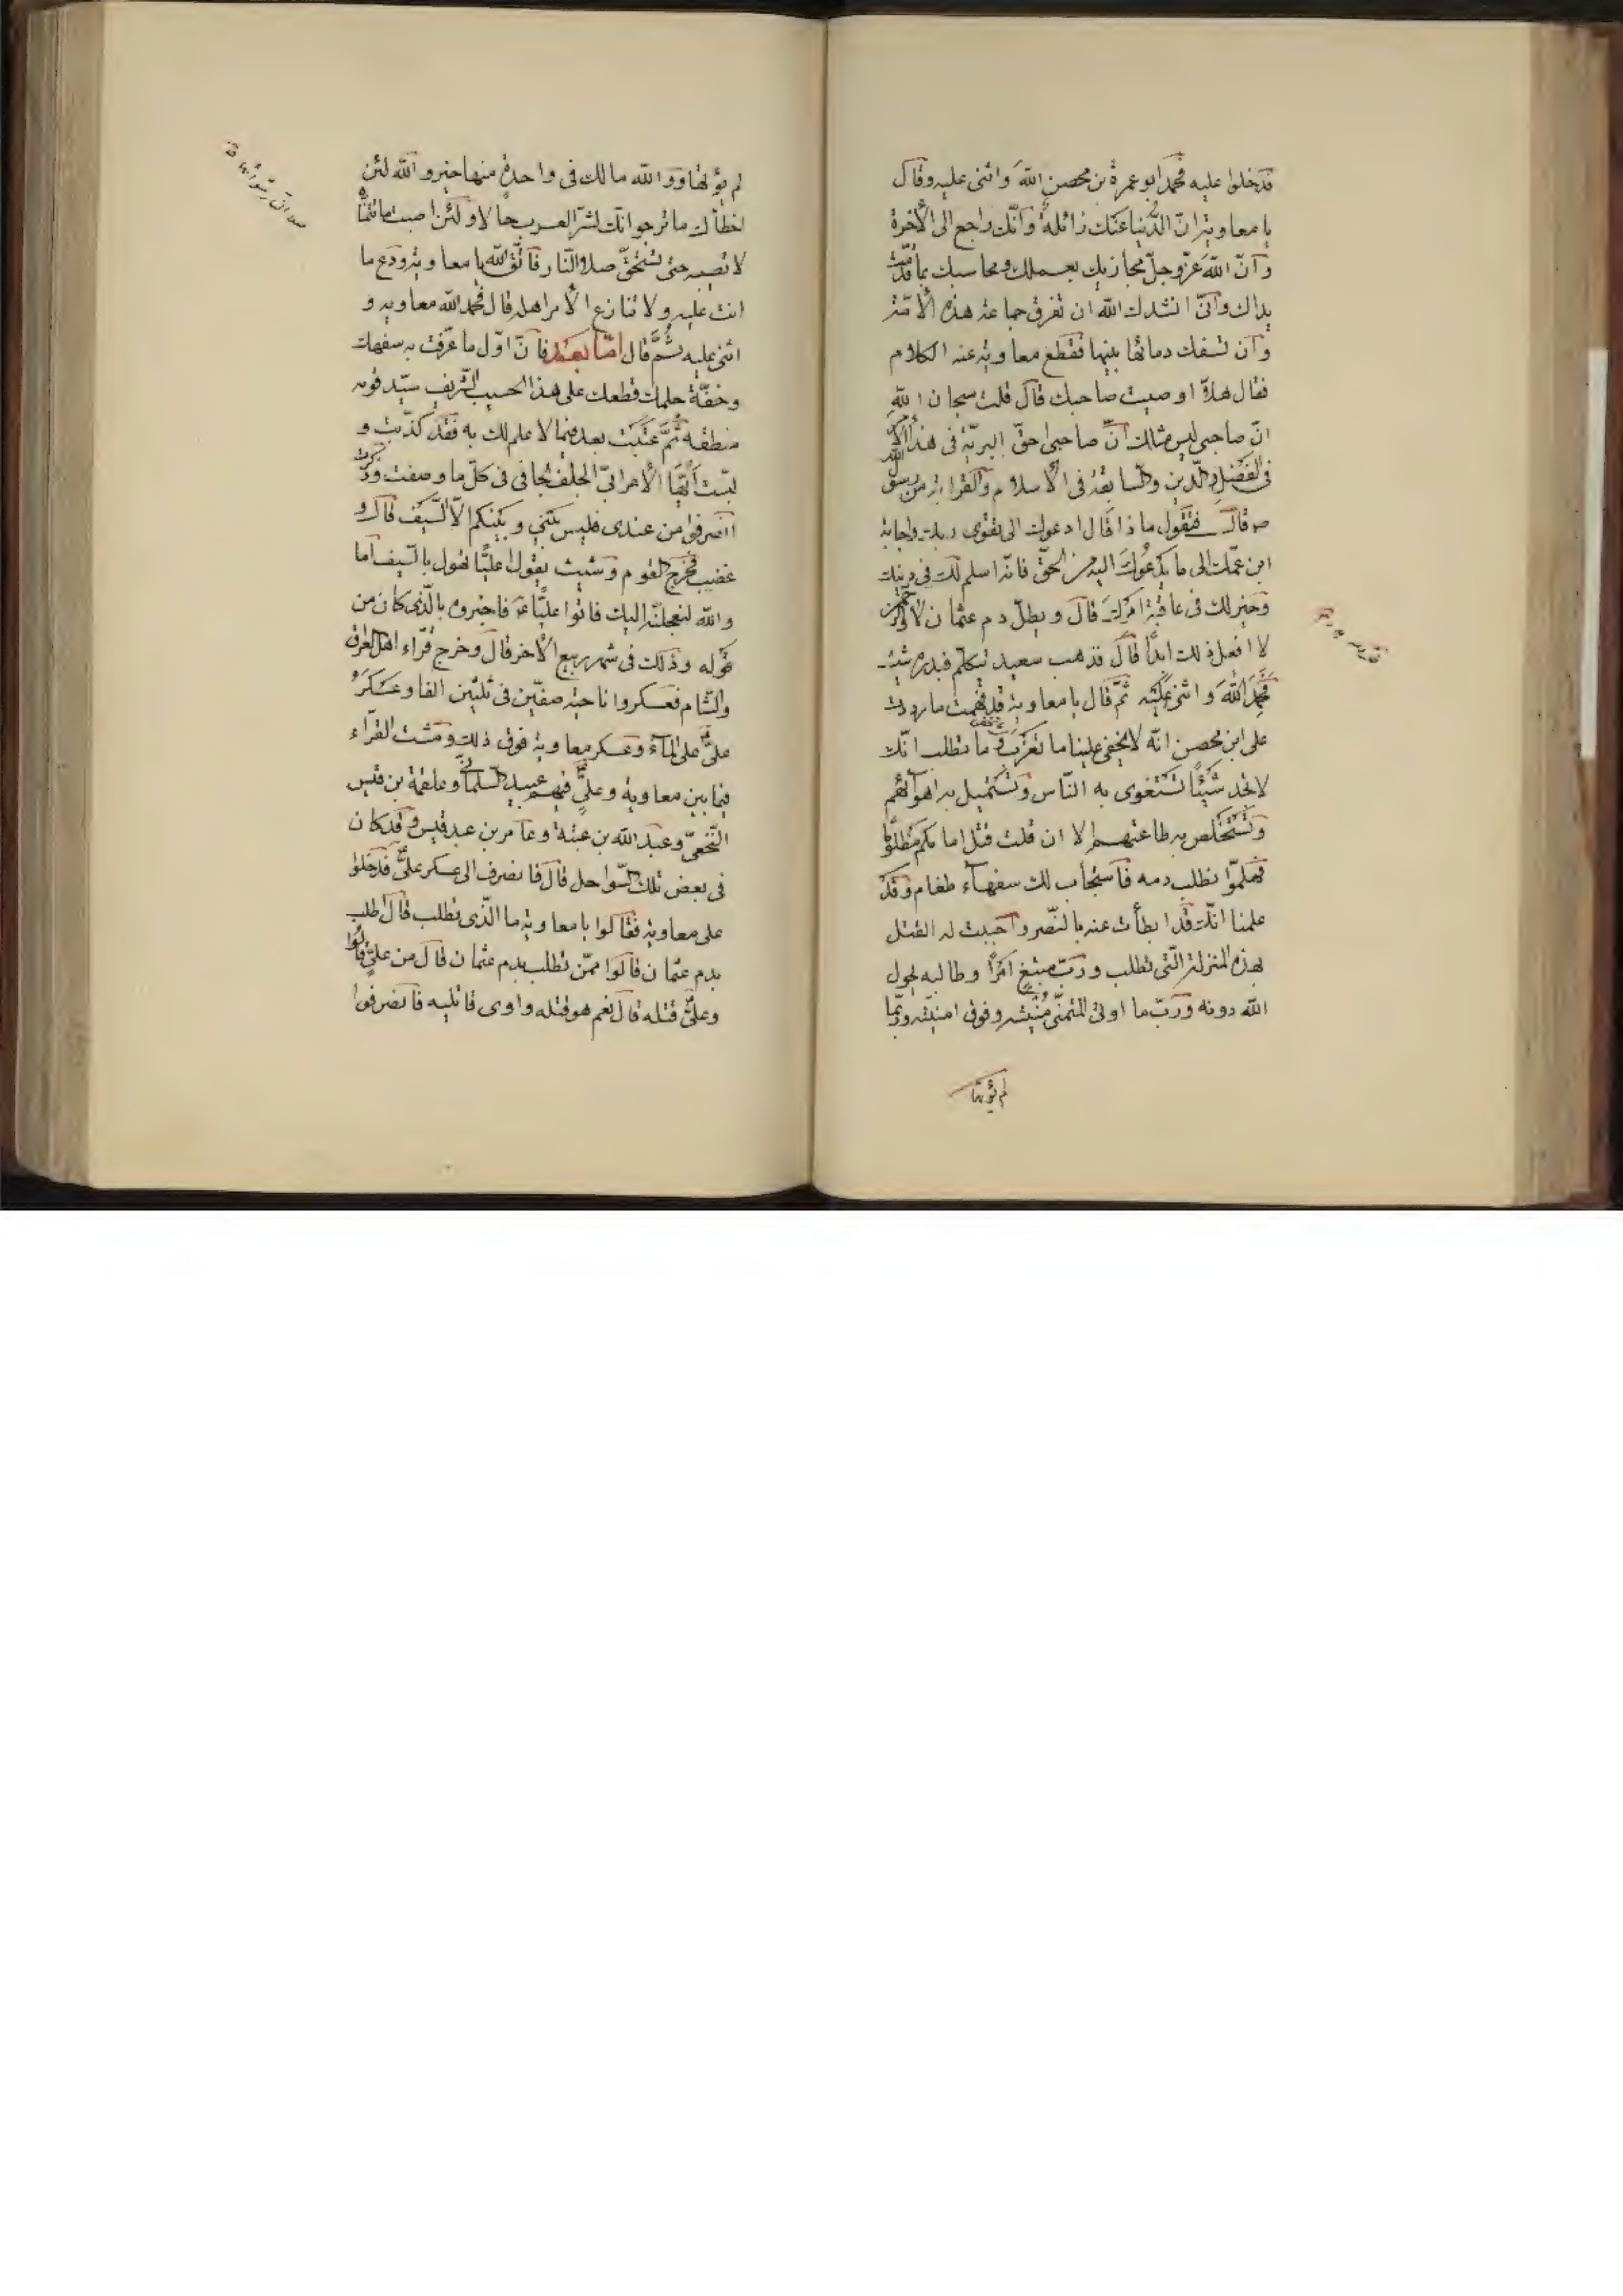 فدخلوا عليه فحمد ابو عمرة بن محصن اللهَ واثنى عليه وقال
يا معاوية انّ الدُّنيا عنك زائلةٌ وانّك راجع الى الأخرة
وانّ اللهَ عزّ وجلّ مجازيك بعملك ومحاسبك بما قدّمت
يداك وانّى انشدك الله ان تفرق جماعة هذه الأمّة
وان تسفك دمائها بينها فقطع معاوية عنه الكلام
فقال هلاّ اوصيت صاحبك قال قلت سبحان الله
انّ صاحبى ليس مثلك انّ صاحبى احقّ البريّة فى هذا الأمر
فى الفضل والدّين والسّابقة فى الأسلام والقرابة من رسول الله
ص قال فتقول ماذا قال ادعوك الى تقوى ربك واجابة
ابن عمّك الى ما يدعوك اليه من الحقّ فانّه اسلم لك فى دينك
وخير لك فى عاقبة امرك قال ويطلّ دم عثمان لا والرّحمن
لا افعل ذلك ابدًا قال فذهب سعيد يتكلم فبدره شبث
فحمد اللهَ واثنى عليه ثمّ قال يا معاوية قد فهمت ما رددت
على ابن محصن انّه لا يخفى علينا ما تقرب وما تطلب انّك
لا تجد شيئًا تستغوى به النّاس وتستميل به اهوآئهم
وتستخلص به طاعتهم الا ان قلت قتل امامكم مظلومًا
فهلمّوا نطلب بدمه فاستجاب لك سفهآء طغام وقد
علمنا انّك قد ابطأت عنه بالنّصر واحببت له القتل
بهذه المنزلة الّتى تطلب وربّ مبتغ امرًا وطالبه يحول
الله دونه وربّ ما اوتى المتمنّى امنيته وفوق امنيّته وربّما
لم يؤتها
لم يؤتها ووالله مالك فى واحدة منها خير والله لئن
اخطأك ما ترجو انّك لشرّ العرب حالا ولئن اصبت ما تتمنّاه
لا تصيبه حتى تستحقّ صلا النّار فاتّق الله يا معاوية ودع ما
انت عليه ولا تنازع الأمر اهله قال فحمد الله معاويه و
اثنى عليه ثمّ قال امّا بعد فانّ اوّل ما عرفت به سفهك
وخفّة حلمك قطعك على هذا الحسيب الشّريف سيّد قومه
منطقه ثمّ عتبت بعد فيما لا علم لك به فقد كذبت و
لبست أيّها الأعرابىّ الجلف الجافى فى كلّ ما وصفت وذكرت
انصرفوا من عندى فليس بينى وبينكم الاّ السّيف قال و
غضب فخرج القوم وشبث يقول اعلينا تهول بالسّيف اما
والله لنعجلنّه اليك فاتوا عليًّا ع فاخبروه بالّذى كان من
قوله وذلك فى شهر ربيع الأخر قال وخرج قرّاء اهل العراق
والشّام فعسكروا ناحية صفّين فى ثلثين الفا وعسكر
علىّ ع على المآء وعسكر معاوية فوق ذلك ومشت القرّآء
فيما بين معاوية وعلىٍّ فيهم عبيد السّلمانى وعلقمة بن قيس
النّخعىّ وعبد الله بن عتبة وعامر بن عبد قيس وقد كان
فى بعض تلك السّواحل قال فانصرف الى عسكر علىٍّ فدخلوا
على معاوية فقالوا يا معاوية ما الّذى تطلب قال اطلب
بدم عثمان قالوا ممّن تطلب بدم عثمان قال من علىٍّ قالوا
وعلىٌّ قتله قال نعم هو قتله واوى قاتليه فانصرفوا